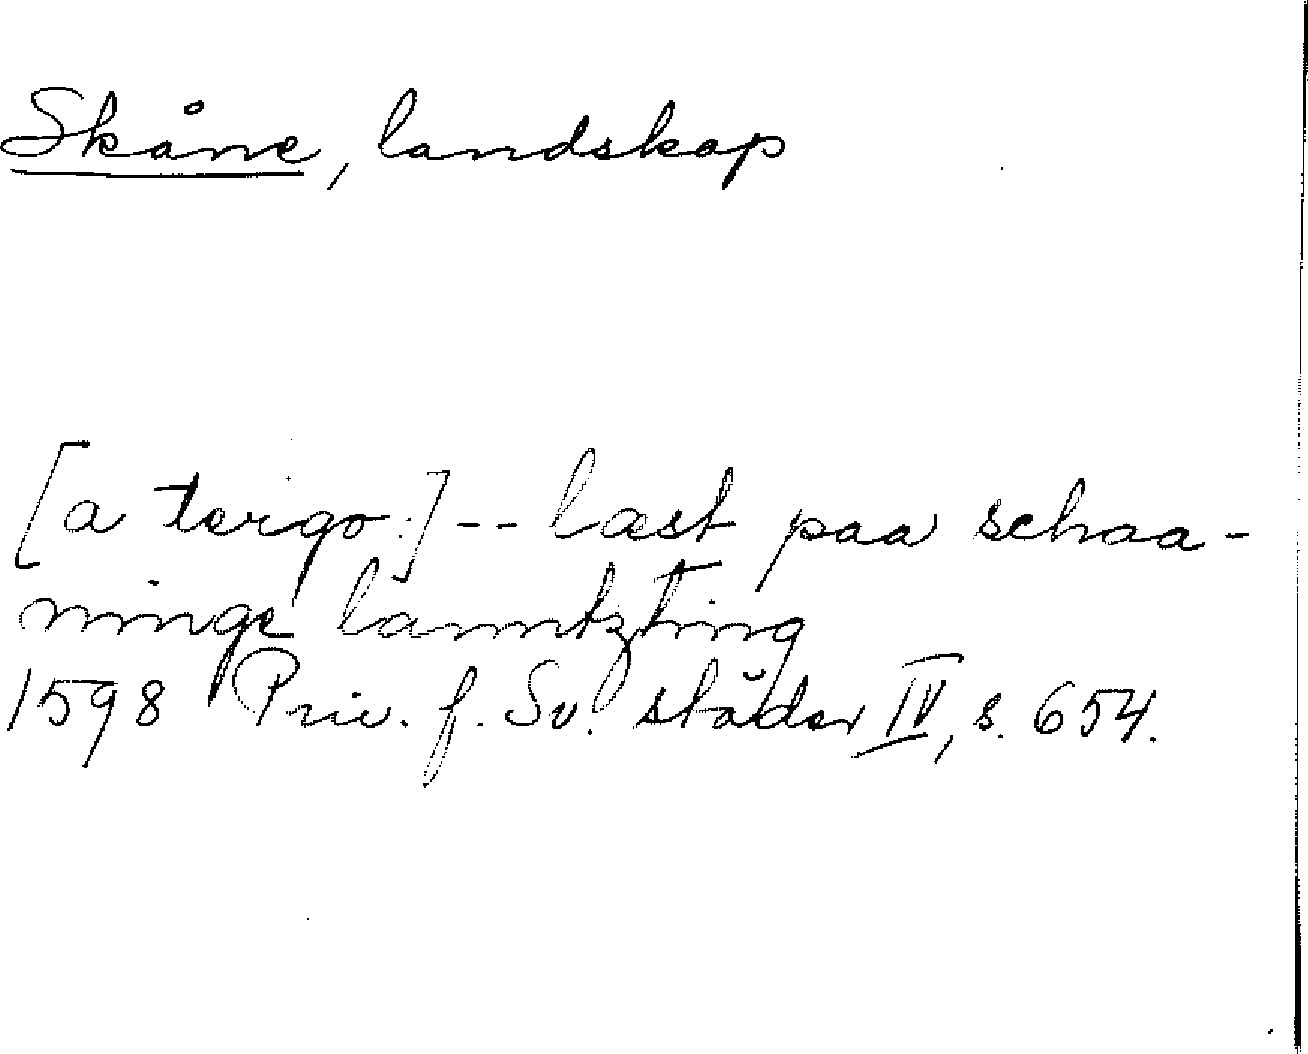 Skåne, landskap
[a tergo:] -- læst paa schaa-
ninge lanntzting
1598 Priv. f. Sv. städer IV, s. 654.